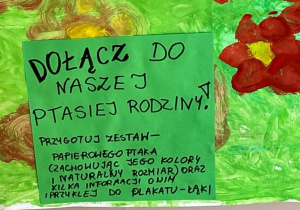 DOŁĄCZ DO
NASZEJ
PTASIEJ RODZINY!
PRZYGOTUJ ZESTAW-
PAPIEROWEGO PTAKA
(ZACHOWUJĄC JEGO KOLORY
I NATURALNY ROZMIAR) ORAZ
KILKA INFORMACJI O NIM
I PRZYKLEJ DO PLAKATU-ŁĄKI